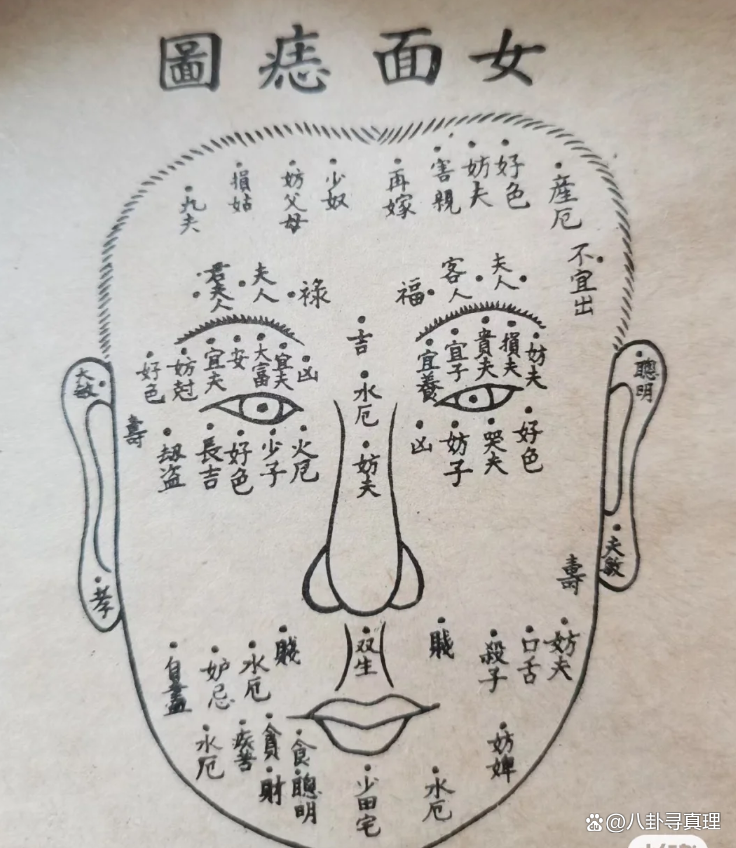 女面痣圖
好色
妨夫
害親
再嫁
少奴
妨父母
損姑
九夫
産厄
不宜出
夫人
客人
福
祿
夫人
君夫人
吉
水厄
妨夫
妨夫
損夫
貴夫
宜子
宜養
凶
宜夫
大富
安
宜夫
妨尅
好色
好色
哭夫
妨子
凶
火厄
少子
好色
長吉
劫盗
壽
大敏
孝
聰明
夫敏
壽
妨夫
口舌
殺子
賤
双生
賤
水厄
妒忌
自盡
妨婢
水厄
少田宅
聰明
食
貪財
疾苦
水厄
@八卦寻真理